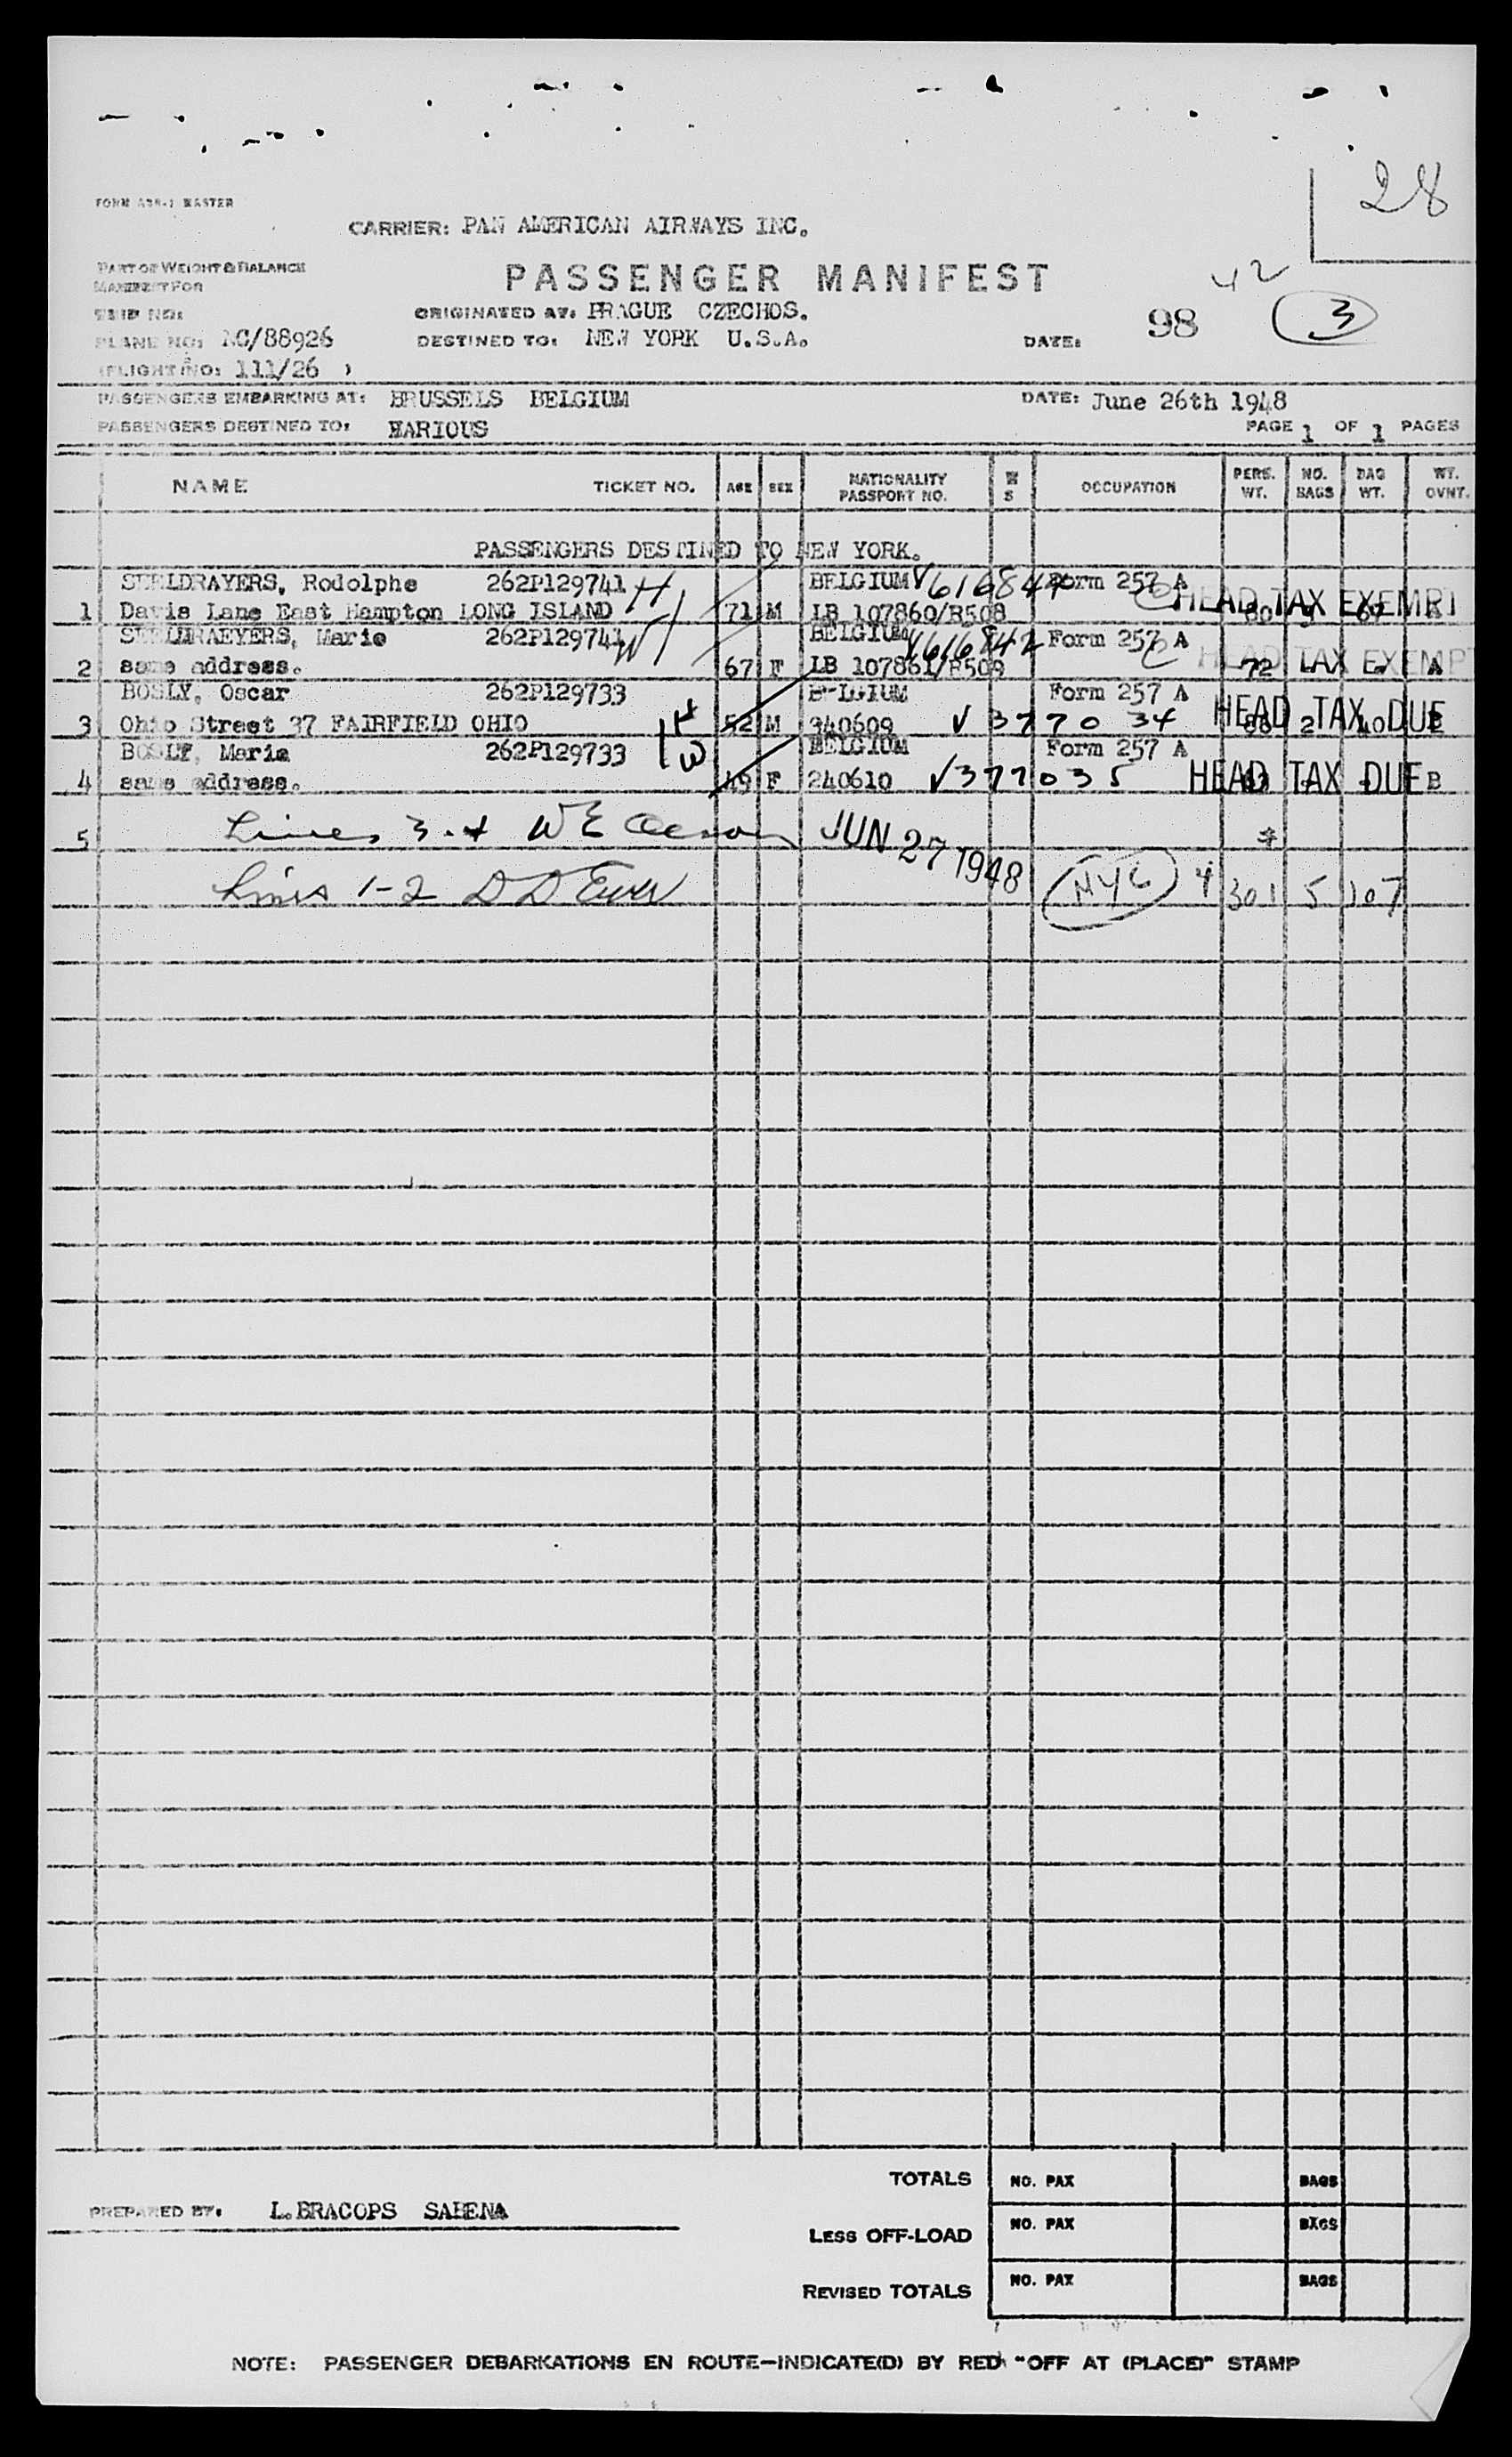 28
FORM MASTER
CARRIER: PAN AMERICAN AIRWAYS INC.
PART OF WEIGHT & BALANCE
MANIFEST FOR
PASSENGER MANIFEST
42
98
3
ORIGINATED AT: PRAGUE CZECHOS.
PLANE NO: NC/88926
DESTINED TO: NEW YORK U.S.A.
DATE:
(FLIGHT NO: 111/26 )
PASSENGERS EMBARKING AT: BRUSSELS BELGIUM
DATE: June 26th 1948
PASSENGERS DESTINED TO:
PAGE 1 OF 1 PAGES
NAME TICKET NO. AGE SEX NATIONALITY PASSPORT NO. OCCUPATION PERS. WT. NO. BAGS BAG WT. WT. OVNT.
PASSENGERS DESTINED TO NEW YORK.
SEELDRAYERS, Rodolphe 262P129741 H BELGIUM V616844 Form 257 A HEAD TAX EXEMPT
1 Davis Lane East Hampton LONG ISLAND 71 M LB 107860/R508 80 3 67 A
SEELDRAEYERS, Marie 262P129741 W BELGIUM V616842 Form 257 A HEAD TAX EXEMPT
2 same address. 67 F LB 107861/R509 72 - - A
BOSLY, Oscar 262P129733 H BELGIUM Form 257 A HEAD TAX DUE
3 Ohio Street 37 FAIRFIELD OHIO 52 M 340609 V 377034 86 2 40 B
BOSLY, Maria 262P129733 W BELGIUM Form 257 A HEAD TAX DUE
4 same address. 49 F 240610 V377035 63 - - B
5 Lines 3-4 JUN 27 1948
Lines 1-2 NYC 4 301 5 107
TOTALS NO. PAX BAGS
PREPARED BY: L.BRACOPS SABENA
LESS OFF-LOAD NO. PAX BAGS
REVISED TOTALS NO. PAX BAGS
NOTE: PASSENGER DEBARKATIONS EN ROUTE—INDICATE(D) BY RED "OFF AT (PLACE)" STAMP